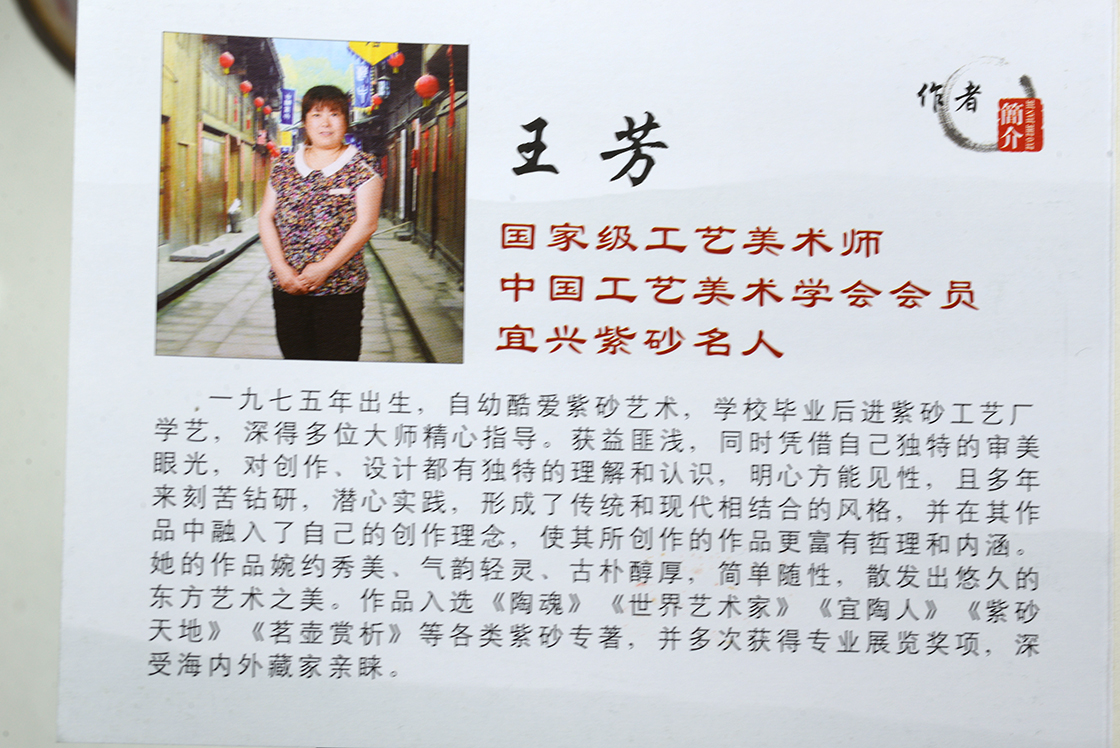 作者
简介
王芳
国家级工艺美术师
中国工艺美术学会会员
宜兴紫砂名人
一九七五年出生，自幼酷爱紫砂艺术，学校毕业后进紫砂工艺厂
学艺，深得多位大师精心指导。获益匪浅，同时凭借自己独特的审美
眼光，对创作、设计都有独特的理解和认识，明心方能见性，且多年
来刻苦钻研，潜心实践，形成了传统和现代相结合的风格，并在其作
品中融入了自己的创作理念，使其所创作的作品更富有哲理和内涵。
她的作品婉约秀美、气韵轻灵、古朴醇厚，简单随性，散发出悠久的
东方艺术之美。作品入选《陶魂》《世界艺术家》《宜陶人》《紫砂
天地》《茗壶赏析》等各类紫砂专著，并多次获得专业展览奖项，深
受海内外藏家亲睐。